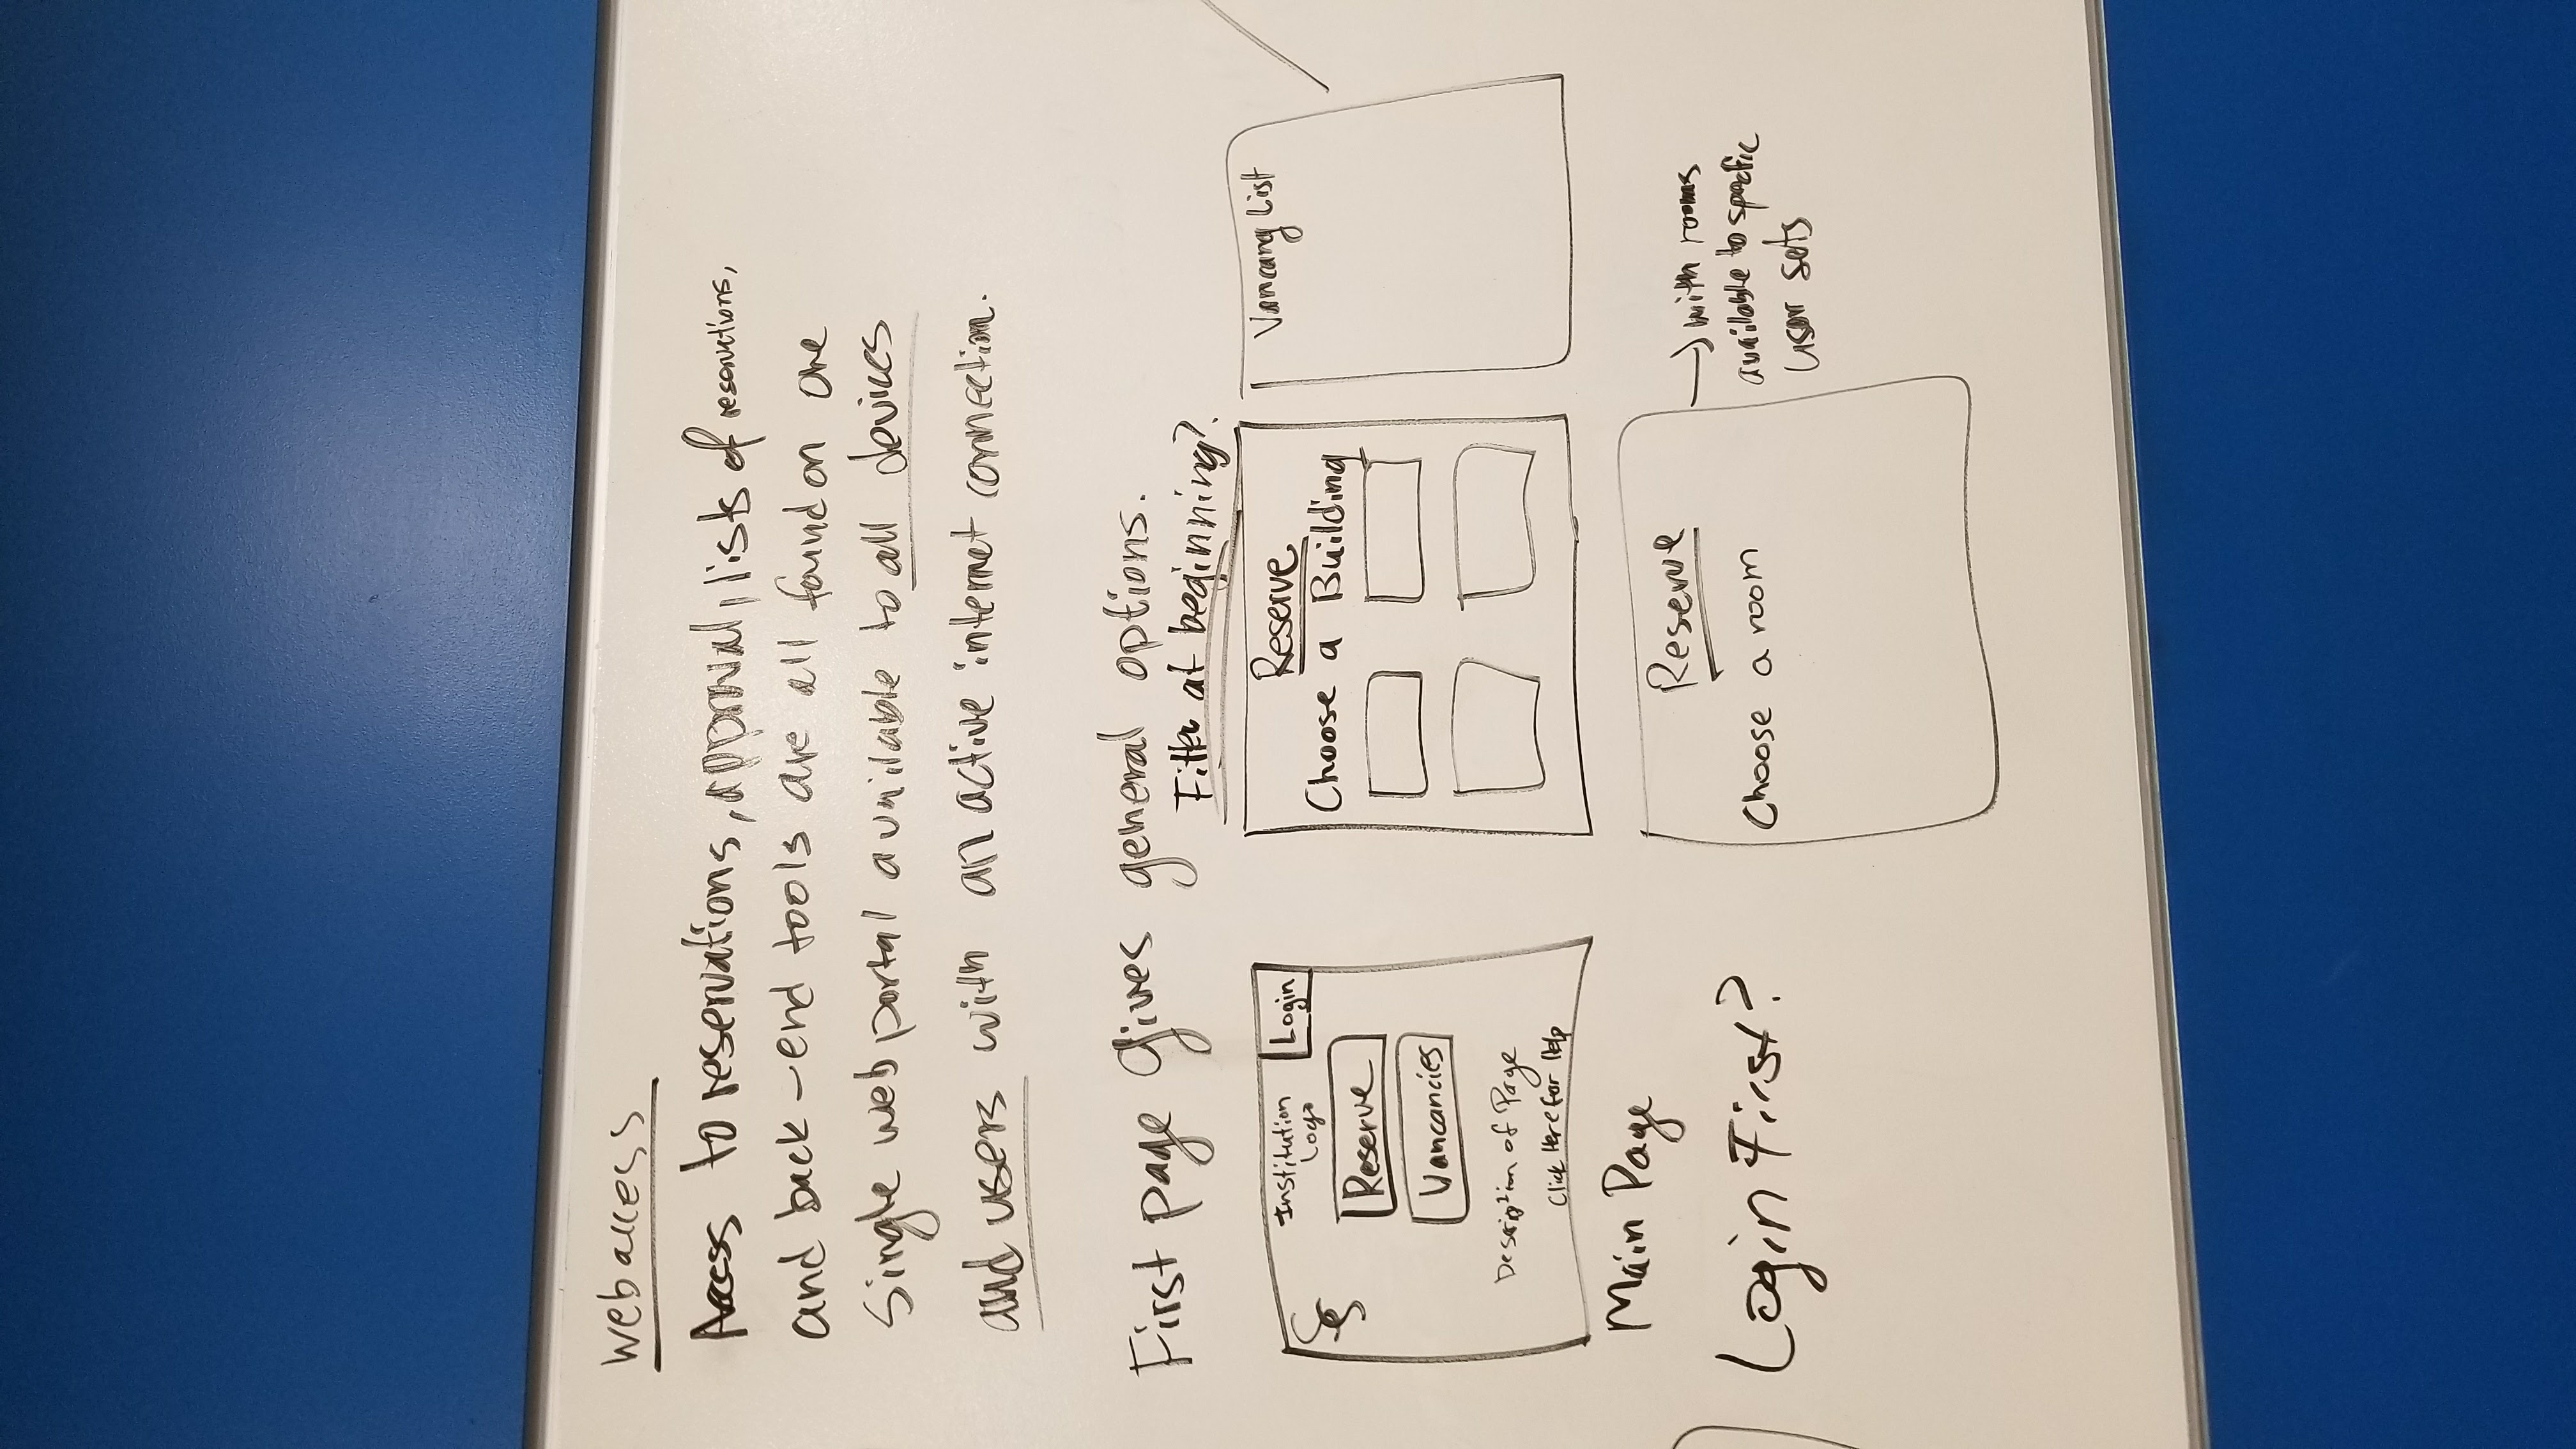 Web access
Access to reservations, approval, lists of reservations,
and back-end tools are all found on one
Single web portal available to all devices
and users with an active internet connection.
First page gives general options.
Filter at beginning?
Institution
Logo
Login
Reserve
Vancancies
Description of Page
Click Here for Help
Main Page
Login First?
Reserve
Choose a Building
Vancancy List
Reserve
Choose a room
with rooms
available to specfic
user sets